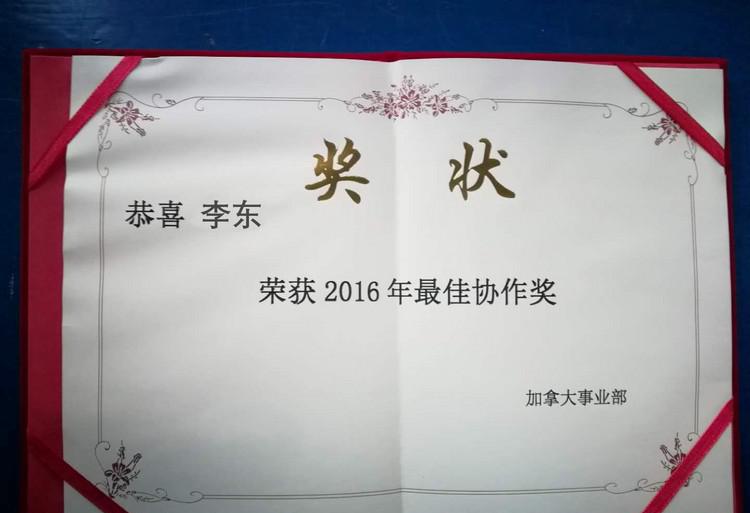 奖 状
恭喜 李东
荣获 2016 年最佳协作奖
加拿大事业部